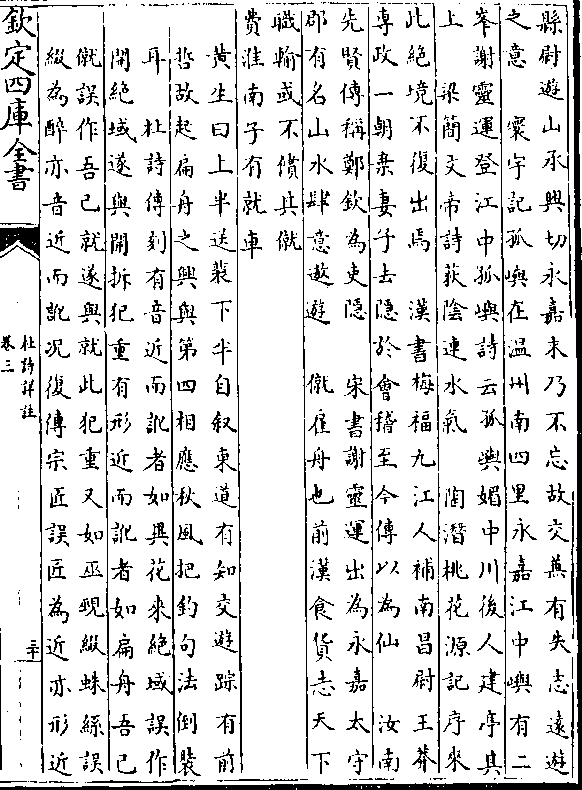 縣尉遊山承興切永嘉末乃不忘故交兼有失志遠遊
之意　寰宇記孤嶼在温州南四里永嘉江中嶼有二
峯謝靈運登江中孤嶼詩云孤嶼媚中川後人建亭其
上　梁簡文帝詩荻陰連水氣　陶潛桃花源記序來
此絶境不復出焉　漢書梅福九江人補南昌尉王莽
専政一朝棄妻子去隠於會稽至今傳以為仙　汝南
先賢傳稱鄭欽為吏隠　宋書謝靈運出為永嘉太守
郡有名山水肆意遨遊　僦雇舟也前漢食貨志天下
職輸或不償其僦
費淮南子有就車
黄生曰上半送裴下半自叙東道有知交遊踪有前
哲故起扁舟之興與第四相應秋風把釣句法倒裝
耳　杜詩傳刻有音近而訛者如異花來絶域誤作
開絶域遂與開拆犯重有形近而訛者如扁舟吾已
僦誤作吾已就遂與就此犯重又如巫覡綴蛛絲誤
綴為醉亦音近而訛况復傳宗匠誤匠為近亦形近
欽定四庫全書
杜詩詳註
卷三
二十